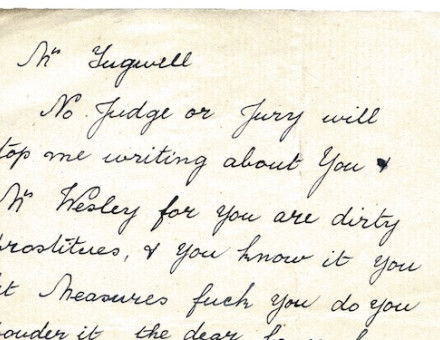 Mrs Tugwell
No Judge or Jury will
top me writing about You &
Mrs Wesley for You are dirty
rostitues, & You know it You
it Measures fuck You do You
ouder it the dear